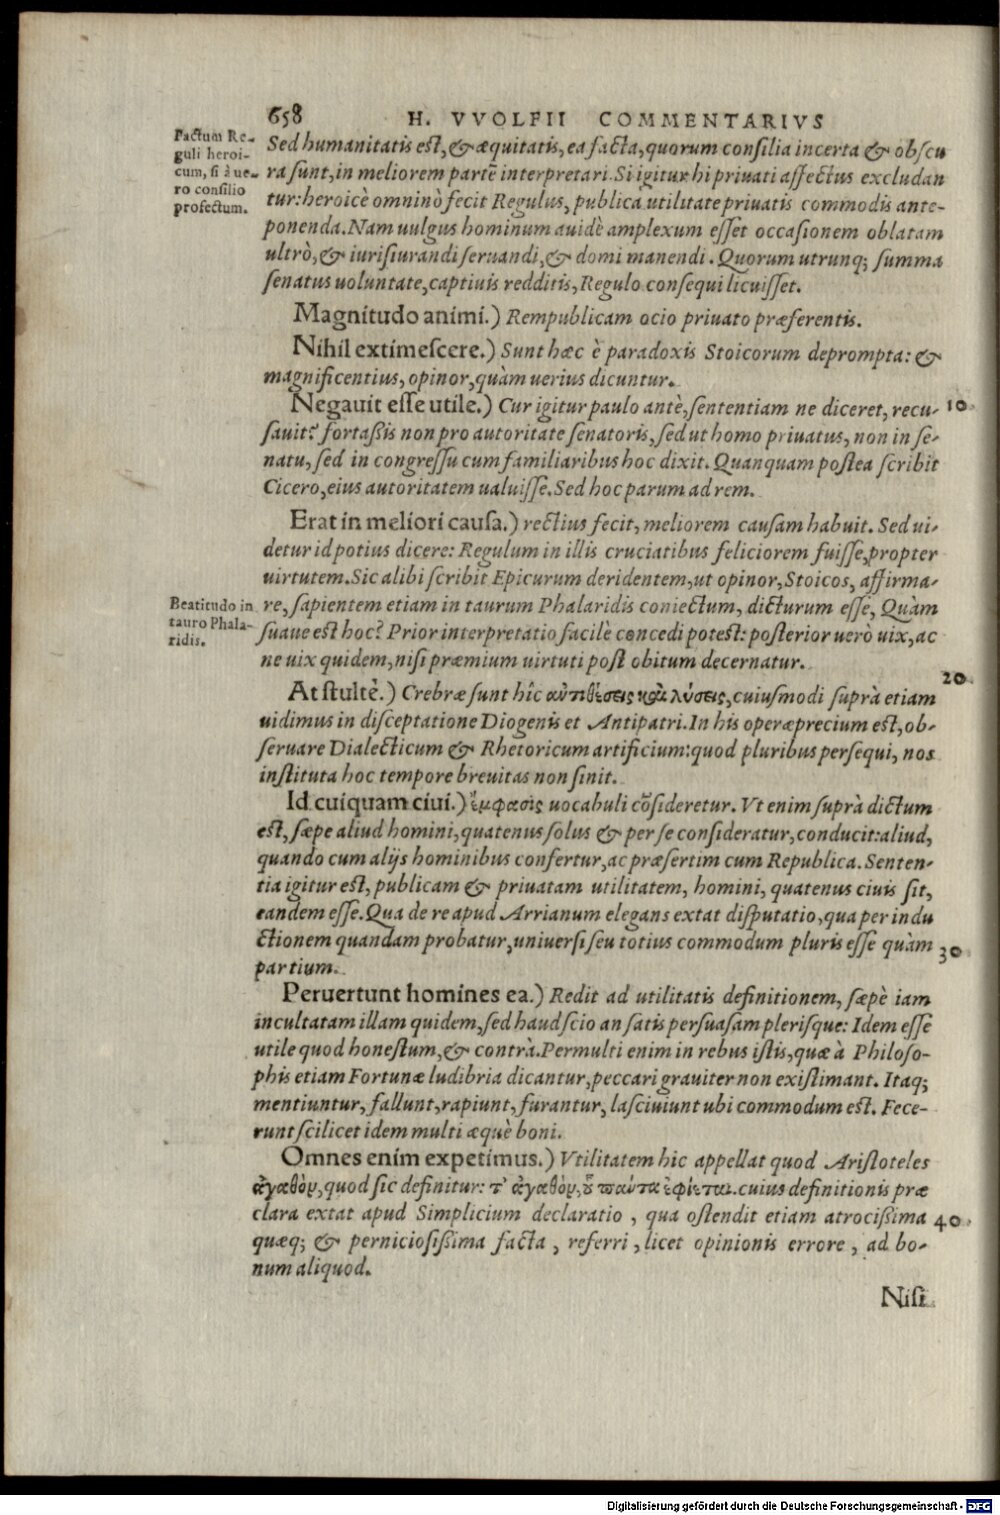 658 H. VVOLFII COMMENTARIVS
Factum Re-
guli heroi-
cum, si à ue-
ro consilio
profectum.
Sed humanitatis est, & æquitatis, ea facta, quorum consilia incerta & obscu
ra sunt, in meliorem partē interpretari. Si igitur hi priuati affectus excludan
tur: heroicè omninò fecit Regulus, publica utilitate priuatis commodis ante-
ponenda. Nam uulgus hominum auidè amplexum esset occasionem oblatam
ultrò, & iurisiurandi seruandi, & domi manendi. Quorum utrunq; summa
senatus uoluntate, captiuis redditis, Regulo consequi licuisset.
Magnitudo animi.) Rempublicam ocio priuato præferentis.
Nihil extimescere.) Sunt hæc è paradoxis Stoicorum deprompta: &
magnificentius, opinor, quàm uerius dicuntur.
Negauit esse utile.) Cur igitur paulo antè, sententiam ne diceret, recu- 10
sauit? fortaßis non pro autoritate senatoris, sed ut homo priuatus, non in se-
natu, sed in congressu cum familiaribus hoc dixit. Quanquam postea scribit
Cicero, eius autoritatem ualuisse. Sed hoc parum ad rem.
Erat in meliori causa.) rectius fecit, meliorem causam habuit. Sed ui-
detur id potius dicere: Regulum in illis cruciatibus feliciorem fuisse, propter
uirtutem. Sic alibi scribit Epicurum deridentem, ut opinor, Stoicos, affirma-
Beatitudo in
tauro Phala-
ridis.
re, sapientem etiam in taurum Phalaridis coniectum, dicturum esse, Quàm
suaue est hoc? Prior interpretatio facilè concedi potest: posterior uerò uix, ac
ne uix quidem, nisi præmium uirtuti post obitum decernatur.
At stultè.) Crebræ sunt hîc ἀντιθέσεις καὶ λύσεις, cuiusmodi suprà etiam 20
uidimus in disceptatione Diogenis et Antipatri. In his operæprecium est, ob-
seruare Dialecticum & Rhetoricum artificium: quod pluribus persequi, nos
instituta hoc tempore breuitas non sinit.
Id cuiquam ciui.) ἔμφασις uocabuli cōsideretur. Vt enim suprà dictum
est, sæpe aliud homini, quatenus solus & per se consideratur, conducit: aliud,
quando cum alijs hominibus confertur, ac præsertim cum Republica. Senten-
tia igitur est, publicam & priuatam utilitatem, homini, quatenus ciuis sit,
eandem esse. Qua de re apud Arrianum elegans extat disputatio, qua per indu
ctionem quandam probatur, uniuersi seu totius commodum pluris esse quàm 30
partium.
Peruertunt homines ea.) Redit ad utilitatis definitionem, sæpè iam
incultatam illam quidem, sed haud scio an satis persuasam plerisque: Idem esse
utile quod honestum, & contrà. Permulti enim in rebus istis, quæ à Philoso-
phis etiam Fortunæ ludibria dicantur, peccari grauiter non existimant. Itaq;
mentiuntur, fallunt, rapiunt, furantur, lasciuiunt ubi commodum est. Fece-
runt scilicet idem multi æquè boni.
Omnes enim expetimus.) Vtilitatem hic appellat quod Aristoteles
ἀγαθὸν, quod sic definitur: τ' ἀγαθὸν, οὗ πάντα ἐφίεται. cuius definitionis præ
clara extat apud Simplicium declaratio, qua ostendit etiam atrocißima 40
quæq; & perniciosißima facta, referri, licet opinionis errore, ad bo-
num aliquod.
Nisi
Digitalisierung gefördert durch die Deutsche Forschungsgemeinschaft - DFG